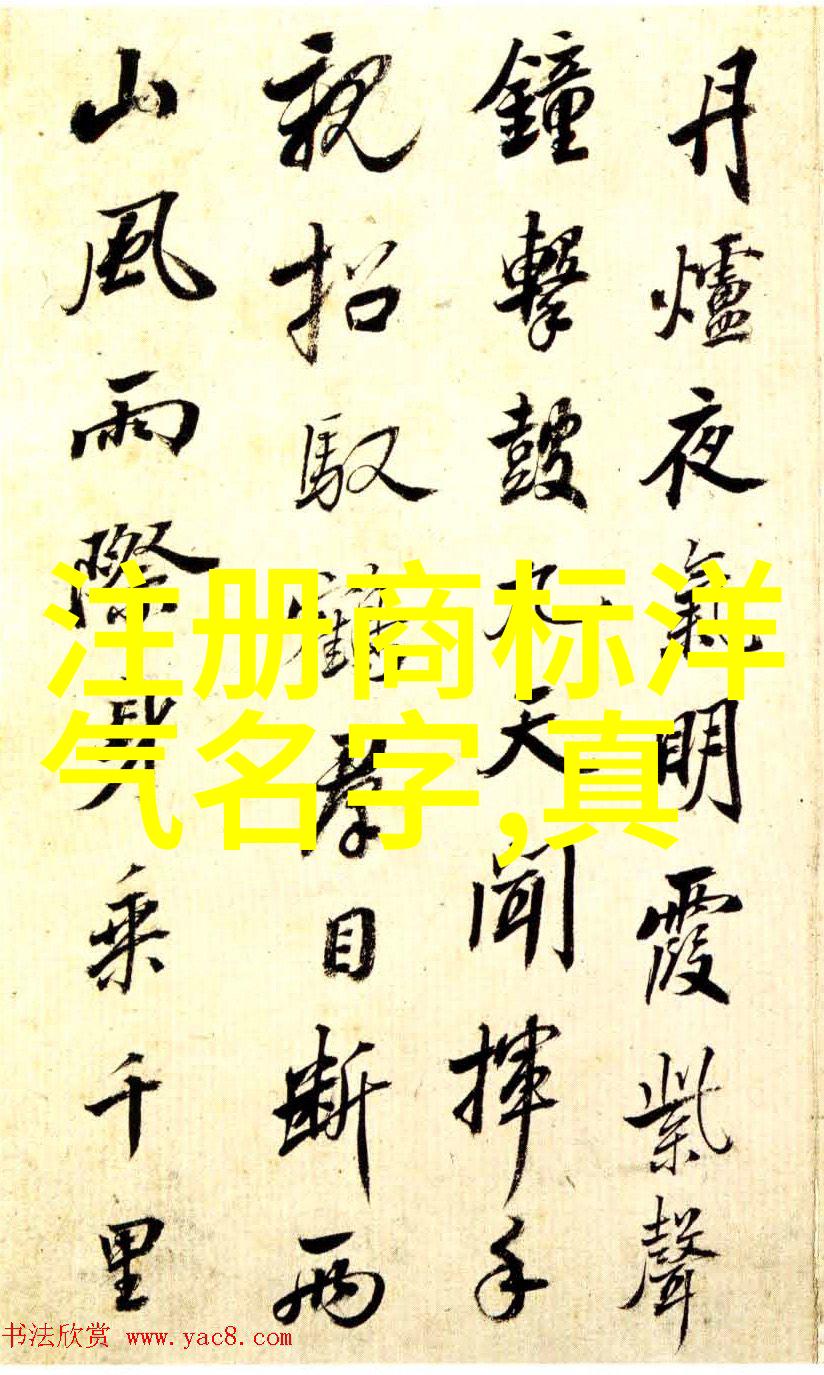 丹爐夜氣明霞紫聲
鐘擊鼓九天聞揮手
親招馭鶴群目斷兩
山風雨際身乘千里
注册商标洋
气名字,真
书法欣赏 www.yac8.com